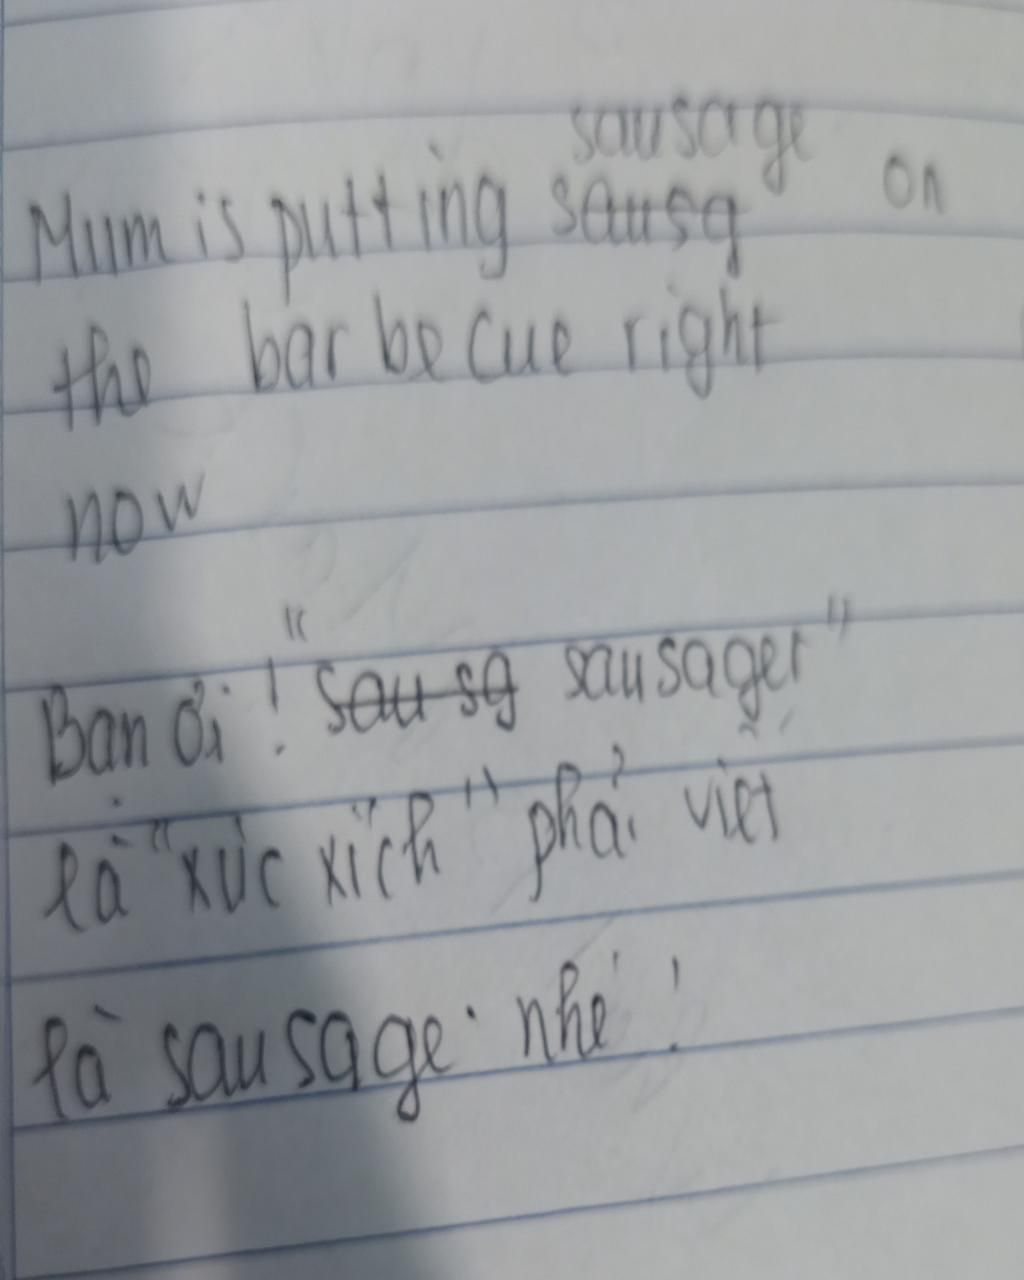 sausage
Mum is putting sausg on
the barbecue right
now
Bạn ơi! "sausg sausager"
là "xúc xích" phải viết
là sausage nhé!